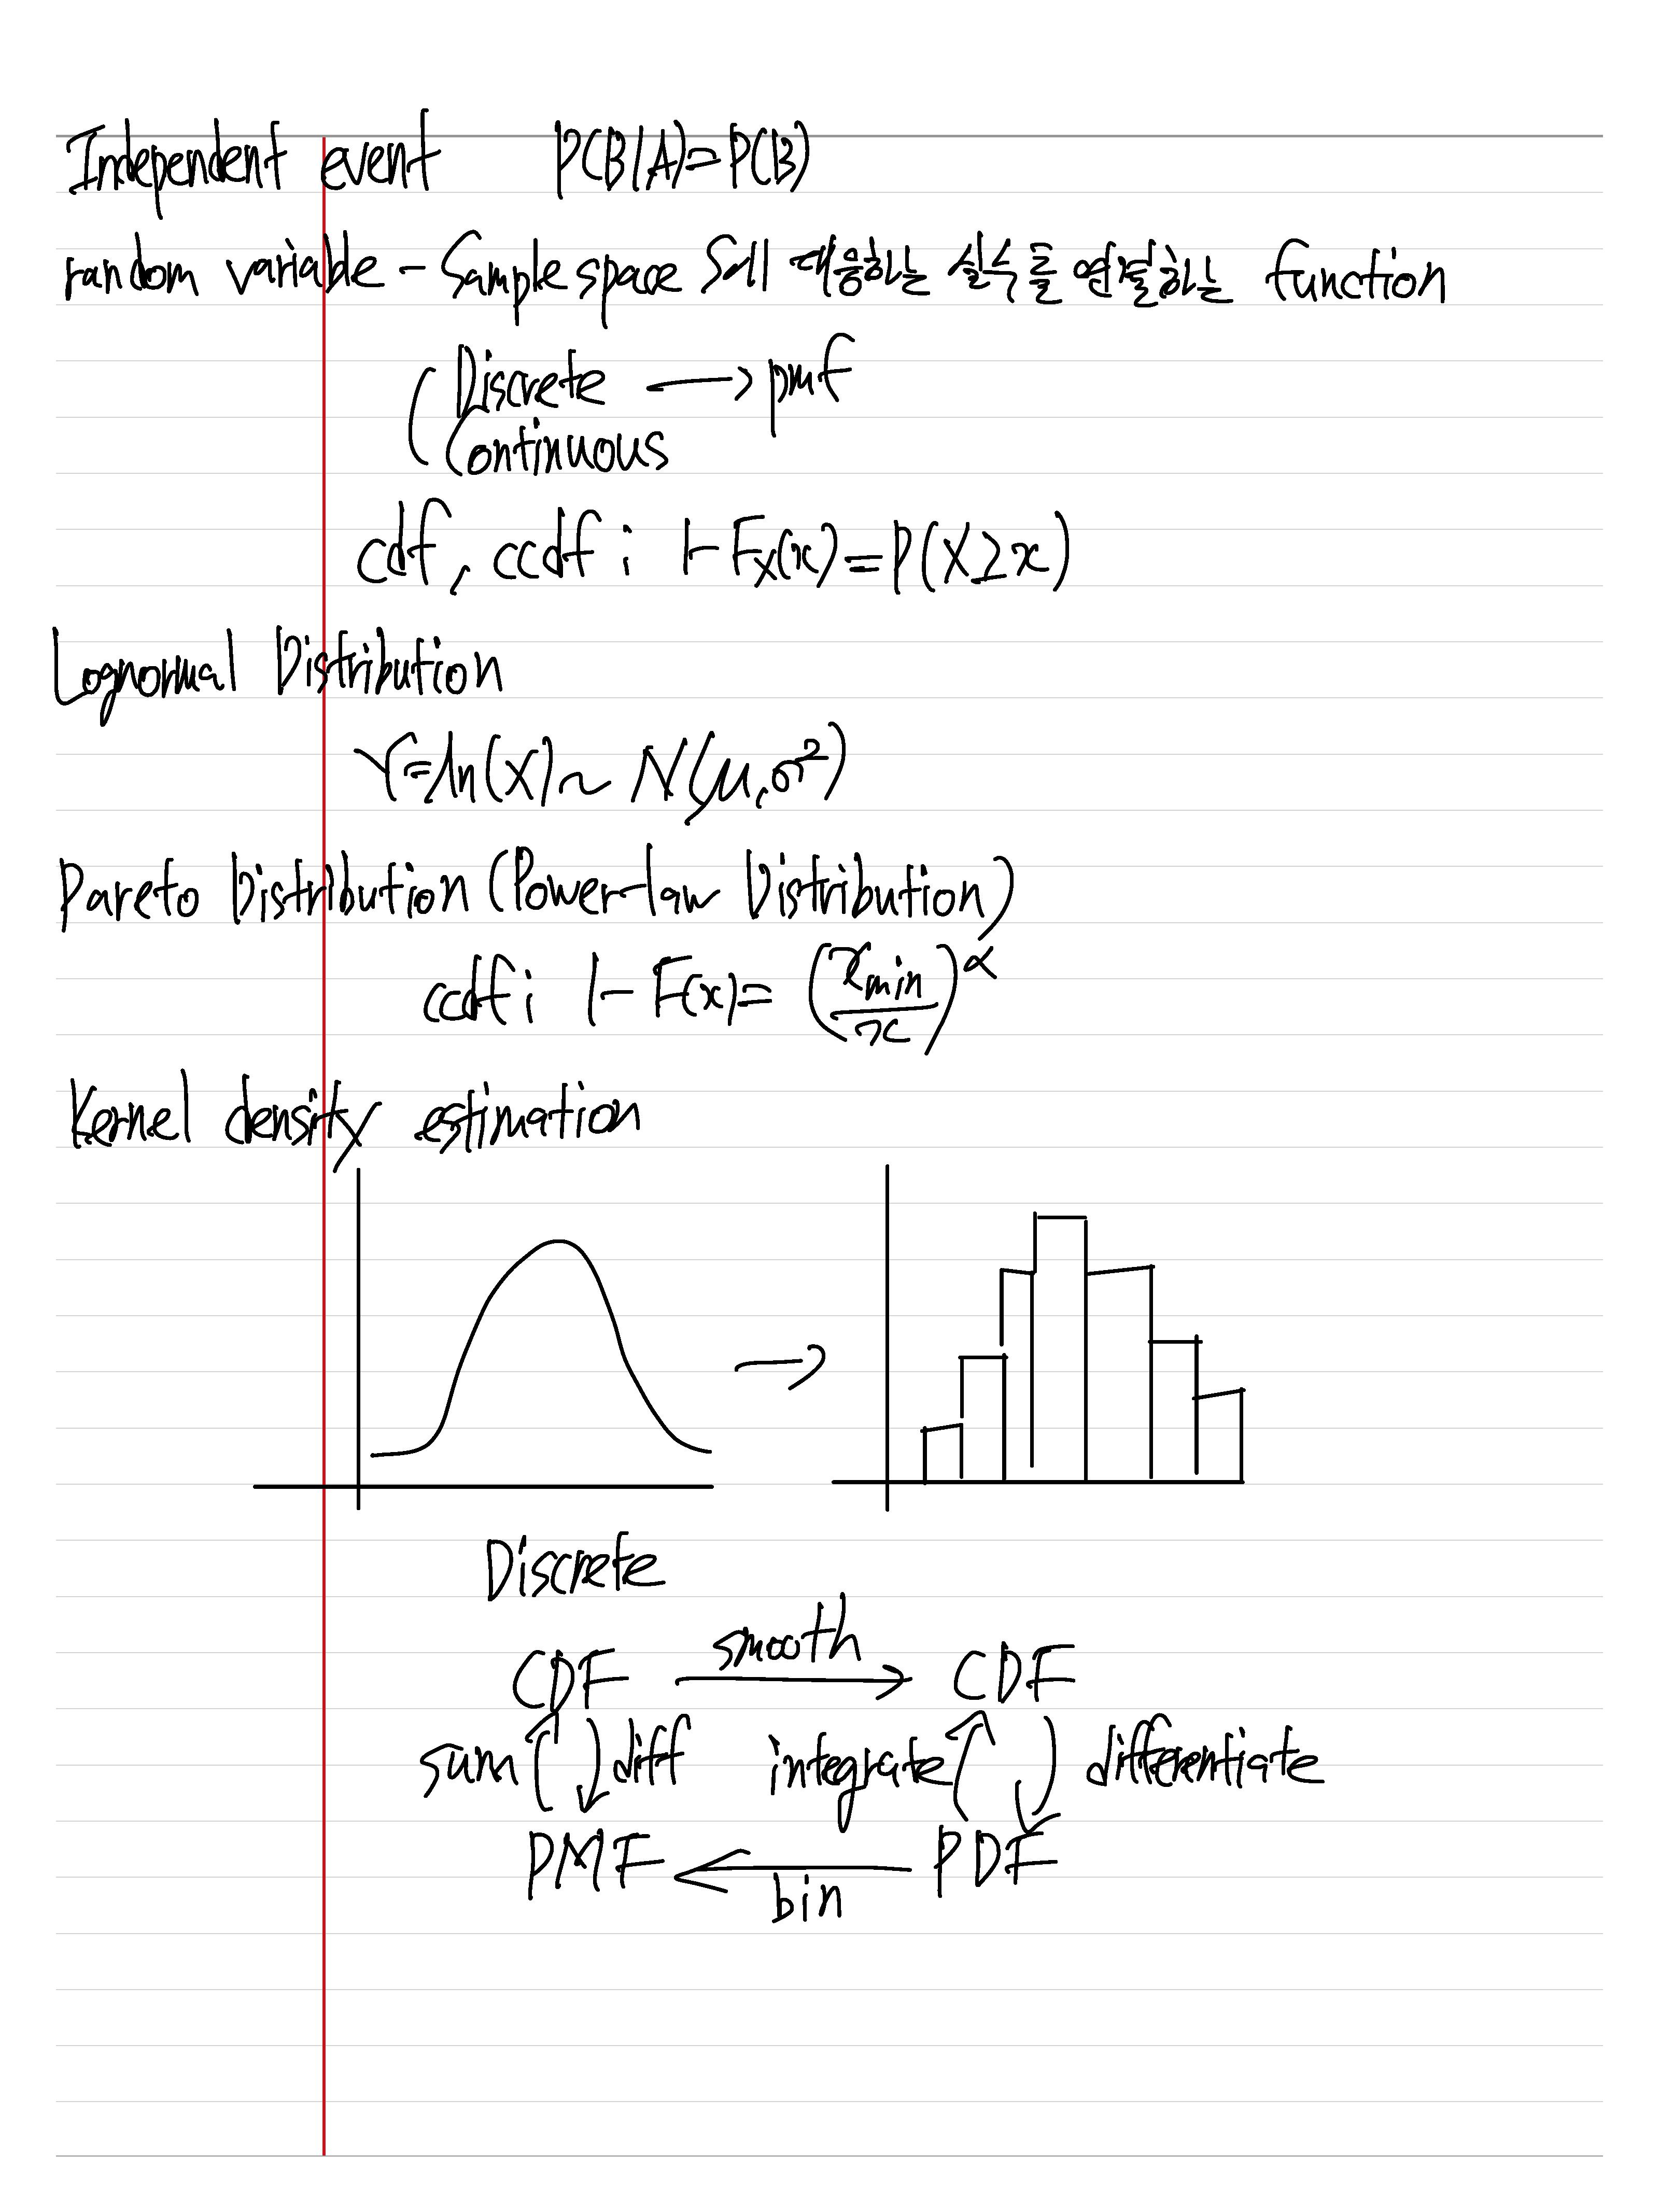 Independent event P(B|A)=P(B)
random variable - Sample space S에 대응하는 실수를 연결하는 function
Discrete → pmf
Continuous
cdf, ccdf : 1-F_X(x)=P(X≥x)
Lognormal Distribution
Y=ln(X)~N(μ,σ²)
Pareto Distribution (Power-law Distribution)
ccdf : 1-F(x)=(x_min/x)^α
Kernel density estimation
→
Discrete
smooth
CDF → CDF
sum diff integrate differentiate
PMF ← PDF
bin